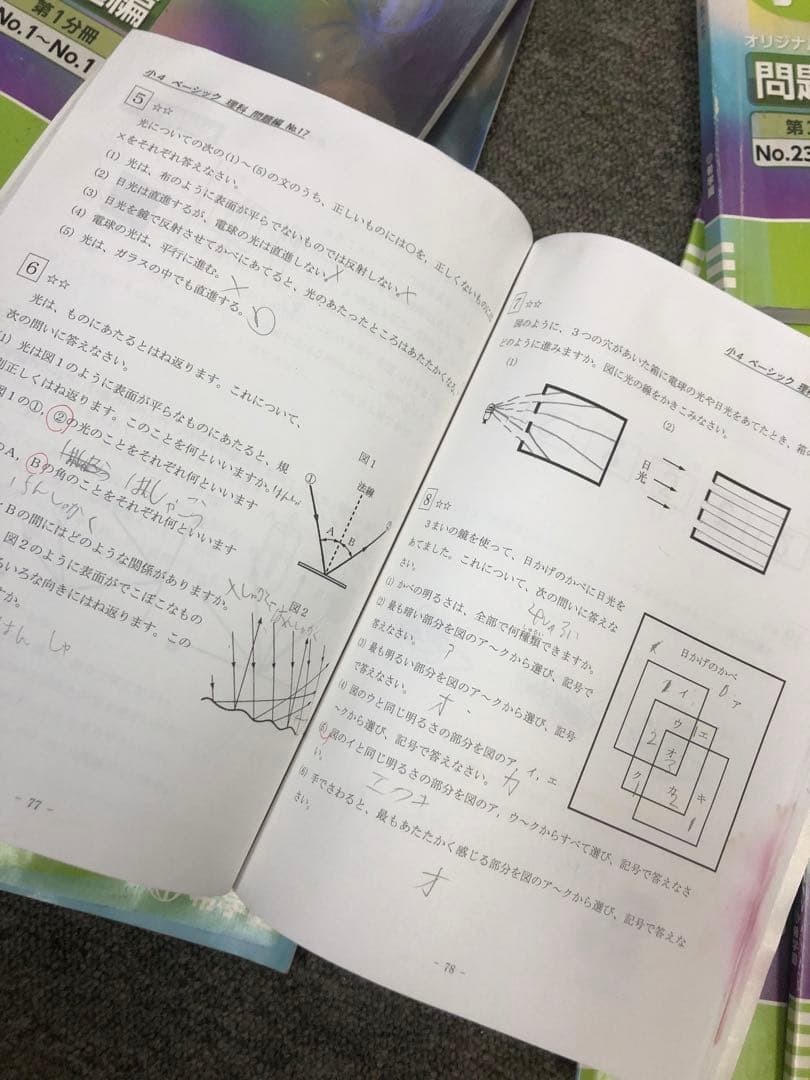 編
第1分冊
No.1～No.1
オリジナル
問題
第
No.23
小4 ベーシック 理科 問題編 No.17
5 ☆☆
光についての次の(1)～(5)の文のうち、正しいものには○を、正しくないものに
×をそれぞれ答えなさい。
(1) 光は、布のように表面が平らでないものでは反射しない。×
(2) 日光は直進するが、電球の光は直進しない。×
(3) 日光を鏡で反射させてかべにあてると、光のあたったところはあたたかくなる。
(4) 電球の光は、平行に進む。×
(5) 光は、ガラスの中でも直進する。○
6 ☆☆
光は、ものにあたるとはね返ります。これについて、
次の問いに答えなさい。
(1) 光は図1のように表面が平らなものにあたると、規
則正しくはね返ります。このことを何といいますか。
図1の①、②の光のことをそれぞれ何といいます
はんしゃこう
A、Bの角のことをそれぞれ何といいます
・Bの間にはどのような関係がありますか。
図2のように表面がでこぼこなもの
ろいろな向きにはね返ります。この
すか。
はん しゃ
図1
①
法線
A
B
図2
- 77 -
小4 ベーシック 理科
7 ☆☆
図のように、3つの穴があいた箱に電球の光や日光をあてたとき、箱の
どのように進みますか。図に光の線をかきこみなさい。
(1)
(2)
日光
8 ☆☆
3まいの鏡を使って、日かげのかべに日光を
あてました。これについて、次の問いに答えな
さい。
(1) かべの明るさは、全部で何種類できますか。
(2) 最も暗い部分を図のア～クから選び、記号で
答えなさい。
(3) 最も明るい部分を図のア～クから選び、記号
で答えなさい。
オ
(4) 図のウと同じ明るさの部分を図のア、イ、エ
～クから選び、記号で答えなさい。カ
(5) 図のイと同じ明るさの部分を図のア、ウ～クからすべて選び、記号で答えなさ
い。
エクキ
(6) 手でさわると、最もあたたかく感じる部分を図のア～クから選び、記号で答えな
さい。
オ
日かげのかべ
ア
イ
ウ
エ
2
オ
ク
カ
キ
- 78 -